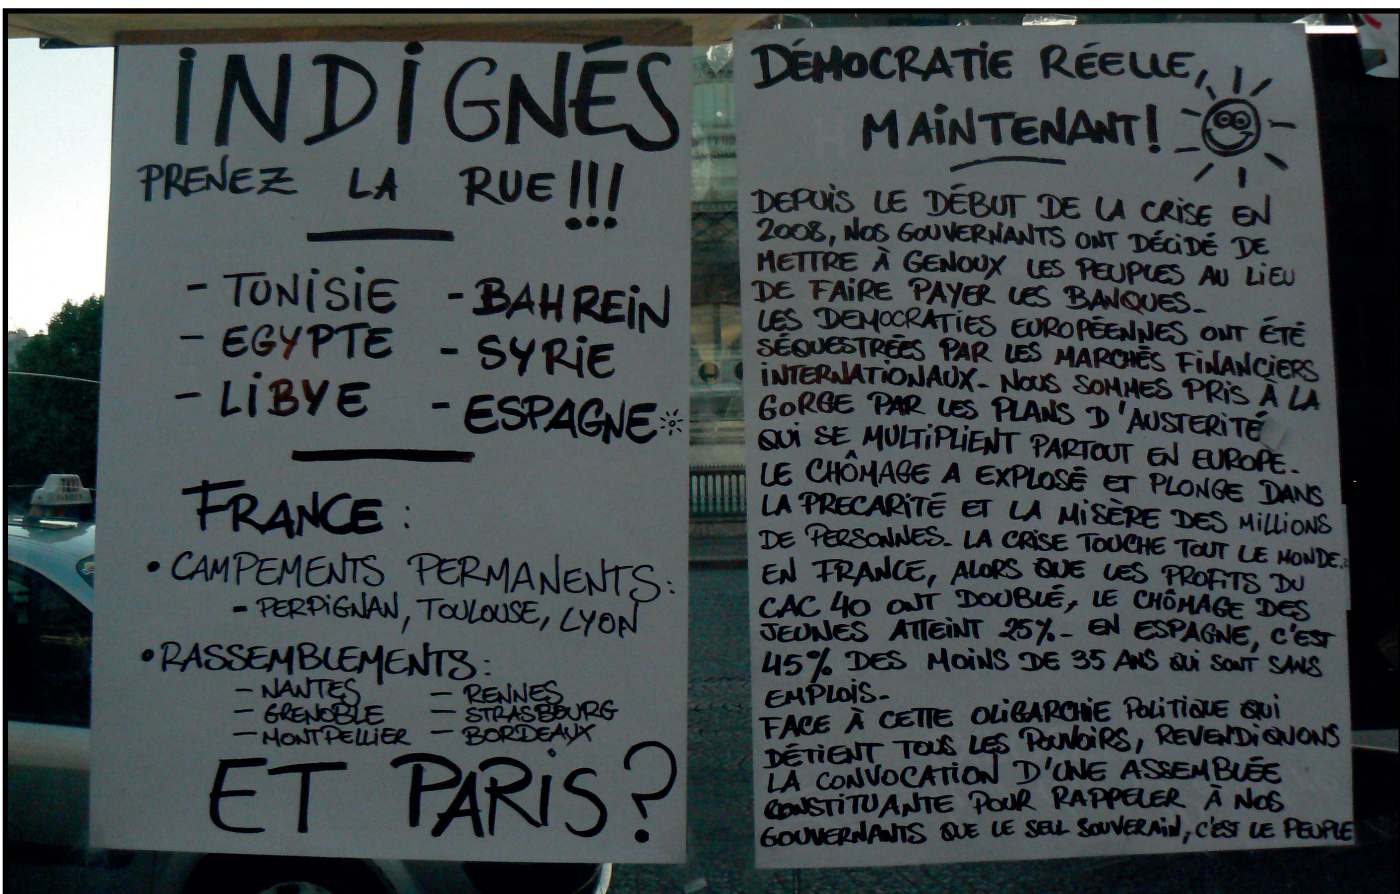 INDIGNÉS
PRENEZ LA RUE!!!
- TUNISIE - BAHREIN
- EGYPTE - SYRIE
- LIBYE - ESPAGNE
FRANCE :
• CAMPEMENTS PERMANENTS :
- PERPIGNAN, TOULOUSE, LYON
• RASSEMBLEMENTS :
- NANTES - RENNES
- GRENOBLE - STRASBOURG
- MONTPELLIER - BORDEAUX
ET PARIS?
DÉMOCRATIE RÉELLE,
MAINTENANT!
DEPUIS LE DÉBUT DE LA CRISE EN
2008, NOS GOUVERNANTS ONT DÉCIDÉ DE
METTRE À GENOUX LES PEUPLES AU LIEU
DE FAIRE PAYER LES BANQUES.
LES DEMOCRATIES EUROPÉENNES ONT ÉTÉ
SÉQUESTRÉES PAR LES MARCHÉS FINANCIERS
INTERNATIONAUX. NOUS SOMMES PRIS À LA
GORGE PAR LES PLANS D'AUSTERITÉ
QUI SE MULTIPLIENT PARTOUT EN EUROPE.
LE CHÔMAGE A EXPLOSÉ ET PLONGE DANS
LA PRECARITÉ ET LA MISÈRE DES MILLIONS
DE PERSONNES. LA CRISE TOUCHE TOUT LE MONDE.
EN FRANCE, ALORS QUE LES PROFITS DU
CAC 40 ONT DOUBLÉ, LE CHÔMAGE DES
JEUNES ATTEINT 25%. EN ESPAGNE, C'EST
45% DES MOINS DE 35 ANS QUI SONT SANS
EMPLOIS.
FACE À CETTE OLIGARCHIE POLITIQUE QUI
DÉTIENT TOUS LES POUVOIRS, REVENDIQUONS
LA CONVOCATION D'UNE ASSEMBLÉE
CONSTITUANTE POUR RAPPELER À NOS
GOUVERNANTS QUE LE SEUL SOUVERAIN, C'EST LE PEUPLE